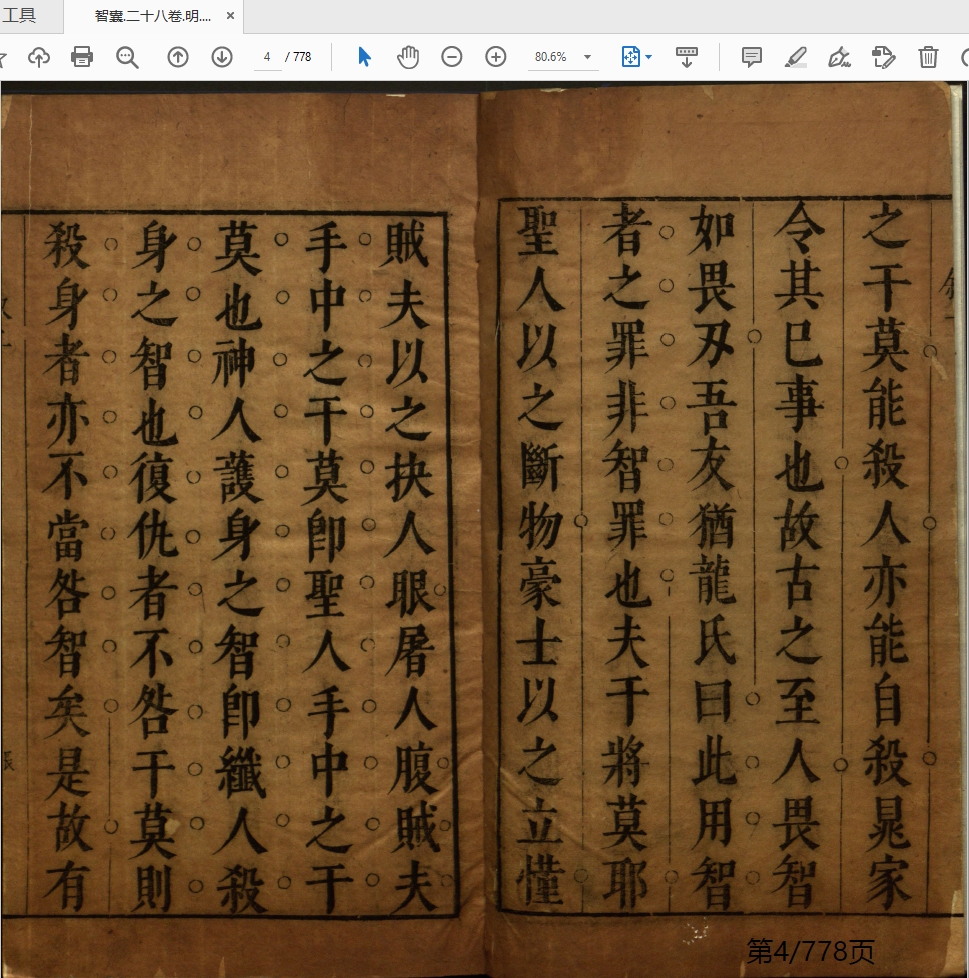 工具
智囊.二十八卷.明....
×
4 / 778
80.6%
之干莫能殺人亦能自殺晁家
令其巳事也故古之至人畏智
如畏刄吾友猶龍氏曰此用智
者之罪非智罪也夫干將莫耶
聖人以之斷物豪士以之立懂
賊夫以之抉人眼屠人腹賊夫
手中之干莫卽聖人手中之干
莫也神人護身之智卽纖人殺
身之智也復仇者不咎干莫則
殺身者亦不當咎智矣是故有
第4/778页